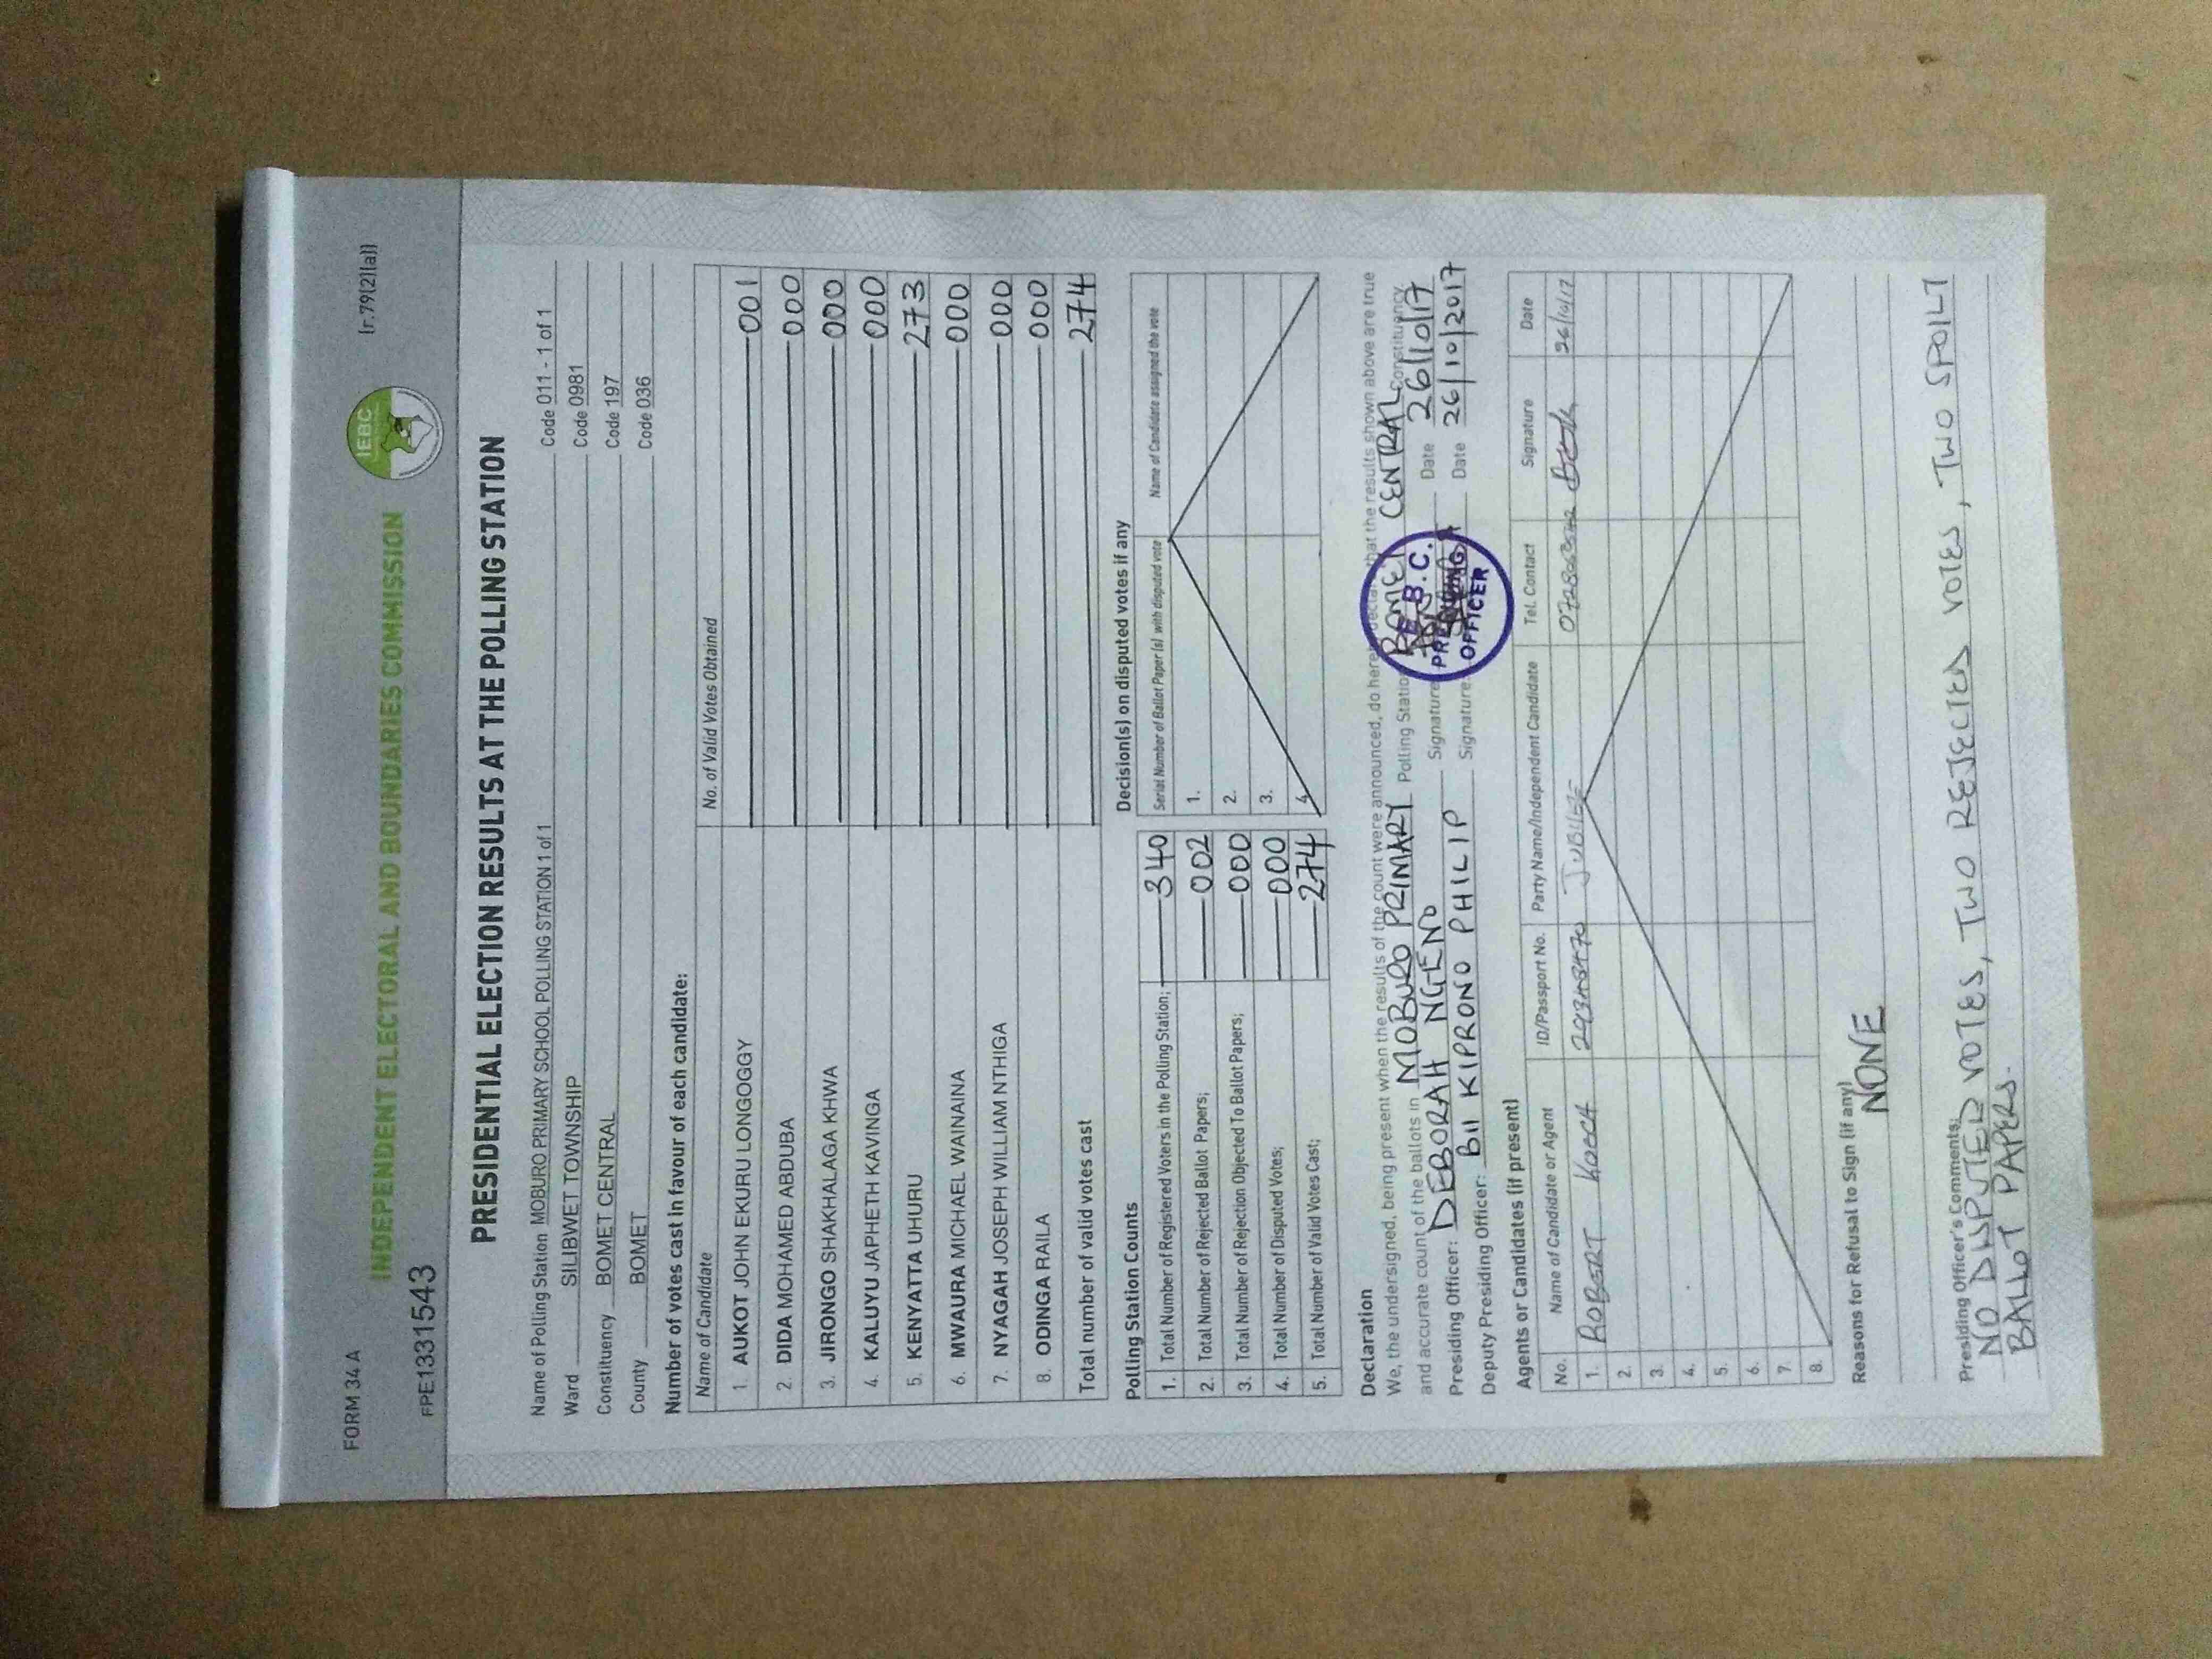 FORM 34 A
[r.79(2)(a)]
INDEPENDENT ELECTORAL AND BOUNDARIES COMMISSION
IEBC
FPE1331543
PRESIDENTIAL ELECTION RESULTS AT THE POLLING STATION
Name of Polling Station MOBURO PRIMARY SCHOOL POLLING STATION 1 of 1 Code 011 - 1 of 1
Ward SILIBWET TOWNSHIP Code 0981
Constituency BOMET CENTRAL Code 197
County BOMET Code 036
Number of votes cast in favour of each candidate:
Name of Candidate No. of Valid Votes Obtained
1. AUKOT JOHN EKURU LONGOGGY 001
2. DIDA MOHAMED ABDUBA 000
3. JIRONGO SHAKHALAGA KHWA 000
4. KALUYU JAPHETH KAVINGA 000
5. KENYATTA UHURU 273
6. MWAURA MICHAEL WAINAINA 000
7. NYAGAH JOSEPH WILLIAM NTHIGA 000
8. ODINGA RAILA 000
Total number of valid votes cast 274
Polling Station Counts
1. Total Number of Registered Voters in the Polling Station; 340
2. Total Number of Rejected Ballot Papers; 002
3. Total Number of Rejection Objected To Ballot Papers; 000
4. Total Number of Disputed Votes; 000
5. Total Number of Valid Votes Cast; 274
Decision(s) on disputed votes if any
Serial Number of Ballot Paper (s) with disputed vote Name of Candidate assigned the vote
1.
2.
3.
4.
Declaration
We, the undersigned, being present when the results of the count were announced, do hereby declare that the results shown above are true
and accurate count of the ballots in MOBURO PRIMARY Polling Station BOMET CENTRAL Constituency
Presiding Officer: DEBORAH NGENO Signature Date 26/10/17
Deputy Presiding Officer: BII KIPRONO PHILIP Signature Date 26/10/2017
I.E.B.C.
PRESIDING
OFFICER
Agents or Candidates (if present)
No. Name of Candidate or Agent ID/Passport No. Party Name/Independent Candidate Tel. Contact Signature Date
1. ROBERT KOECH JUBILEE 26/10/17
2.
3.
4.
5.
6.
7.
8.
Reasons for Refusal to Sign (if any)
NONE
Presiding Officer's Comments;
NO DISPUTED VOTES, TWO REJECTED VOTES, TWO SPOILT
BALLOT PAPERS.